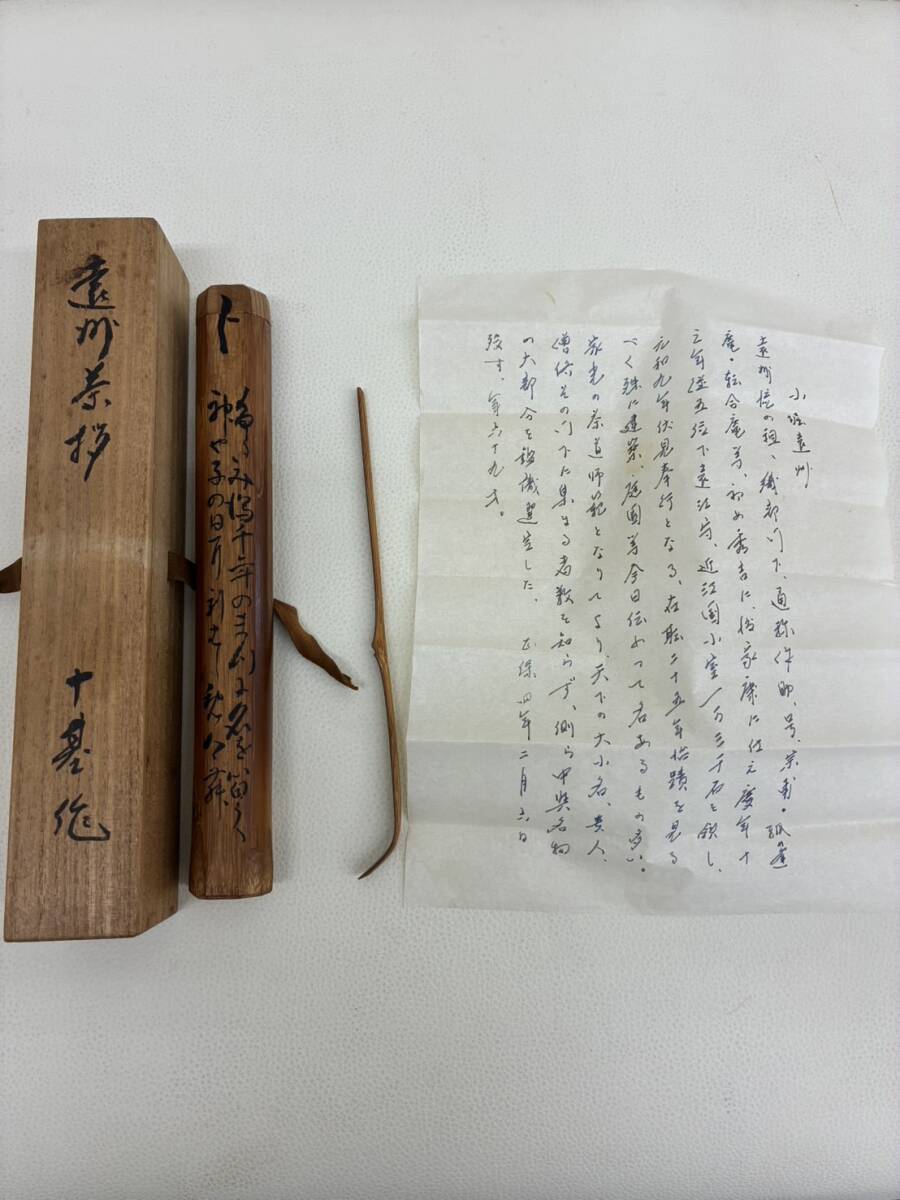 遠州茶杓
十基作
ト
小堀遠州
遠州流の祖、織部門下、通称作助、号、宗甫・孤篷
庵・転合庵等、初め秀吉に、後家康に仕え慶年十
三年従五位下遠江守、近江国小室一万三千石を領し、
元和九年伏見奉行となる、在職二十五年治蹟を見る
べく殊に建築、庭園等今日伝よって名あるもの多い。
家光の茶道師範となりてより、天下の大小名、貴人、
僧俗その門下に集まる者数を知らず、側ら中興名物
の大部分を鑑識選定した、正保四年二月六日
歿す、年六十九才。